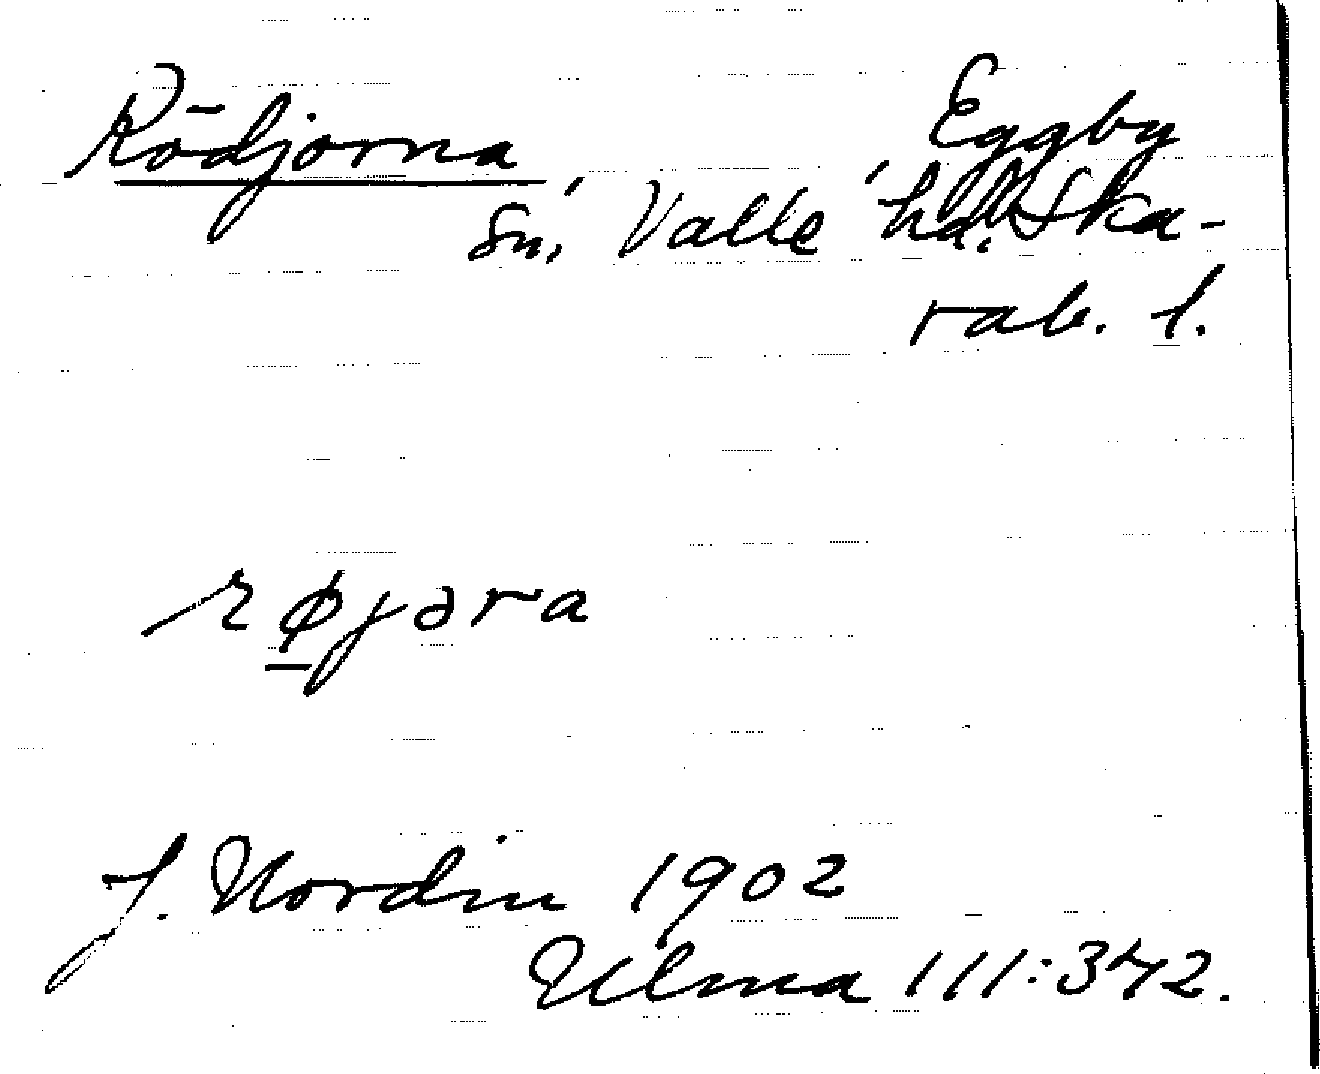 Rödjorna Eggby
sn, Valle hd. Ska-
rab. l.
røjəra
J. Nordin 1902
Ulma 111:342.